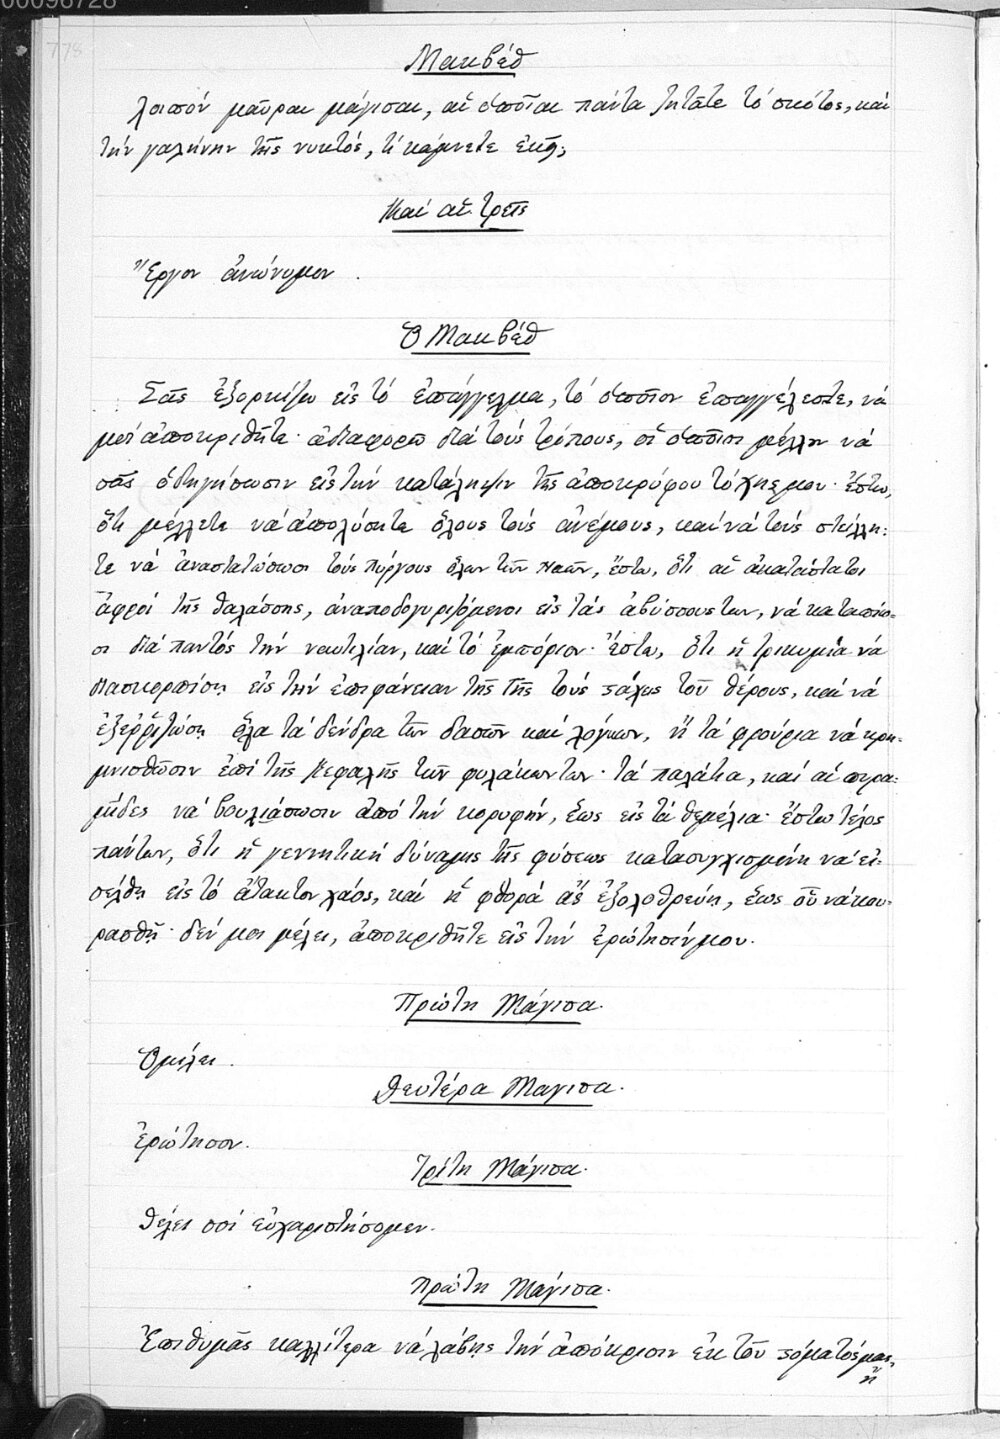 00096728
778
Μακβέθ
λοιπόν μαῦραι μάγισαι, αἱ ὁποῖαι πάντα ζητᾶτε τὸ σκότος, καὶ
τὴν γαλήνην τῆς νυκτός, τί κάμνετε ἐκεῖ;
Καὶ αἱ τρεῖς
Ἔργον ἀνώνυμον.
Ὁ Μακβέθ
Σᾶς ἐξορκίζω εἰς τὸ ἐπάγγελμα, τὸ ὁποῖον ἐπαγγέλεσθε, νὰ
μοὶ ἀποκριθῆτε· ἀδιαφορῶ διὰ τοὺς τρόπους, οἱ ὁποῖοι μέλλουν νὰ
σᾶς ὁδηγήσωσιν εἰς τὴν κατάληψιν τῆς ἀποκρύφου τόλμης μου· ἔστω,
ὅτι μέλλετε νὰ ἀπολύσητε ὅλους τοὺς ἀνέμους, καὶ νὰ τοὺς στείλλη-
τε νὰ ἀναστατώσωσι τοὺς πύργους ὅλων τῶν ναῶν, ἔστω, ὅτι οἱ ἀκατάστατοι
ἀφροὶ τῆς θαλάσσης, ἀναποδογυριζόμενοι εἰς τὰς ἀβύσσους των, νὰ καταπίω-
σι διὰ παντὸς τὴν ναυτιλίαν, καὶ τὸ ἐμπόριον· ἔστω, ὅτι ἡ τρικυμία νὰ
διασκορπίσῃ εἰς τὴν ἐπιφάνειαν τῆς γῆς τοὺς στάχεις τοῦ θέρους, καὶ νὰ
ἐξεῤῥιζώσῃ ὅλα τὰ δένδρα τῶν δασῶν καὶ λόγκων, ἢ τὰ φρούρια νὰ κρη-
μνισθῶσιν ἐπὶ τῆς κεφαλῆς τῶν φυλάκων των· τὰ παλάτια, καὶ αἱ πυρα-
μίδες νὰ βουλιάσωσιν ἀπὸ τὴν κορυφὴν, ἕως εἰς τὰ θεμέλια· ἔστω τέλος
πάντων, ὅτι ἡ γεννητικὴ δύναμις τῆς φύσεως κατασυγχισμένη νὰ εἰ-
σέλθῃ εἰς τὸ ἄτακτον χάος, καὶ ἡ φθορὰ ἂς ἐξολοθρεύῃ, ἕως οὗ νὰ κου-
ρασθῇ· δὲν μοι μέλει, ἀποκριθῆτε εἰς τὴν ἐρώτησίν μου.
Πρώτη Μάγισα.
Ὁμίλει.
Δευτέρα Μάγισα.
Ἐρώτησον.
Τρίτη Μάγισα.
Θέλει σοὶ εὐχαριστήσομεν.
Πρώτη Μάγισα.
Ἐπιθυμᾶς καλλίτερα νὰ λάβῃς τὴν ἀπόκρισιν ἐκ τοῦ στόματός μας,
ἢ